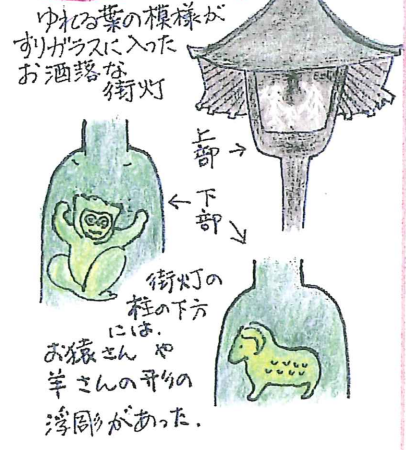 ゆれる葉の模様が
すりガラスに入った
お洒落な
街灯
上部→
←下部
↘
街灯の
柱の下方
には、
お猿さん や
羊さんの形の
浮彫があった.